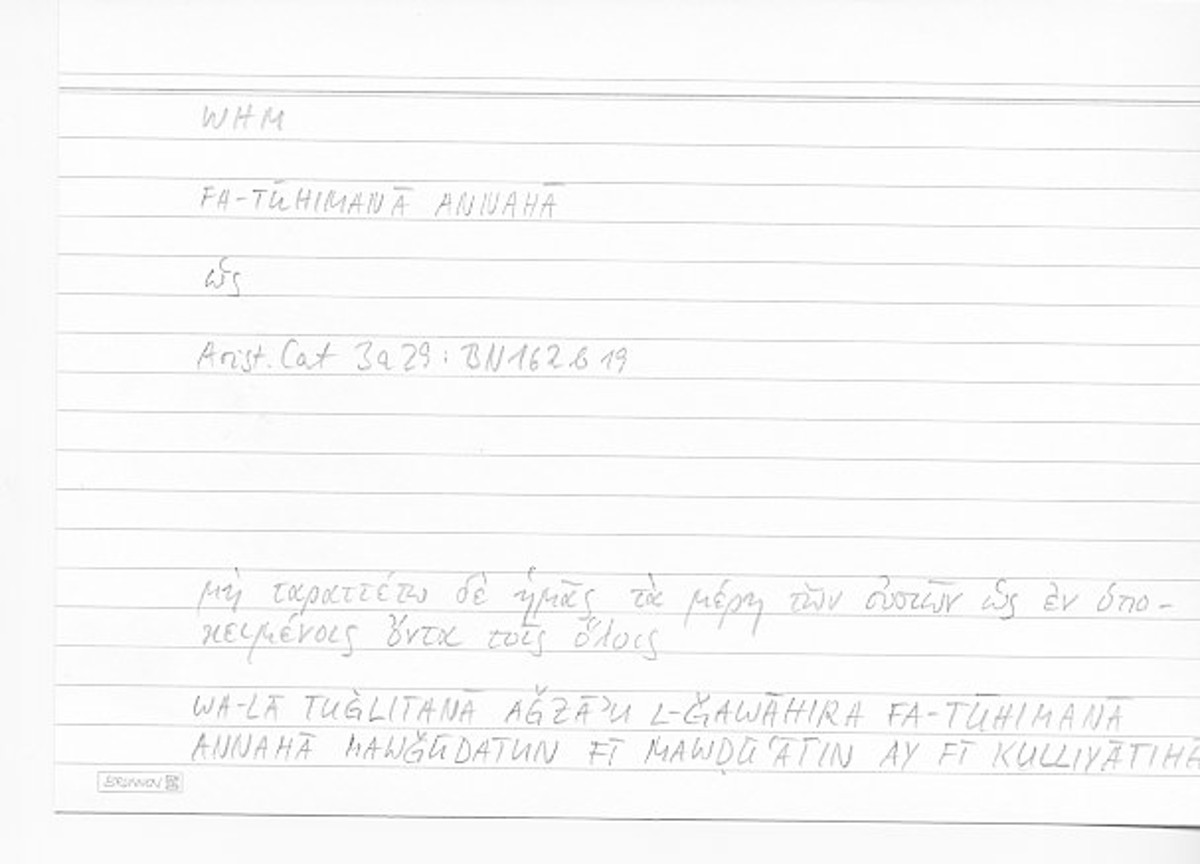 WHM
FA-TŪHIMANĀ ANNAHĀ
ὡς
Arist. Cat 3a29 : BN 162b19
μὴ ταραττέτω δὲ ἡμᾶς τὰ μέρη τῶν οὐσιῶν ὡς ἐν ὑπο-
κειμένοις ὄντα τοῖς ὅλοις
WA-LĀ TUĠLITANĀ AǦZĀʾU L-ǦAWĀHIRA FA-TŪHIMANĀ
ANNAHĀ MAWǦŪDATUN FĪ MAWḌŪʿĀTIN AY FĪ KULLIYĀTIHĀ
BRUNNEN